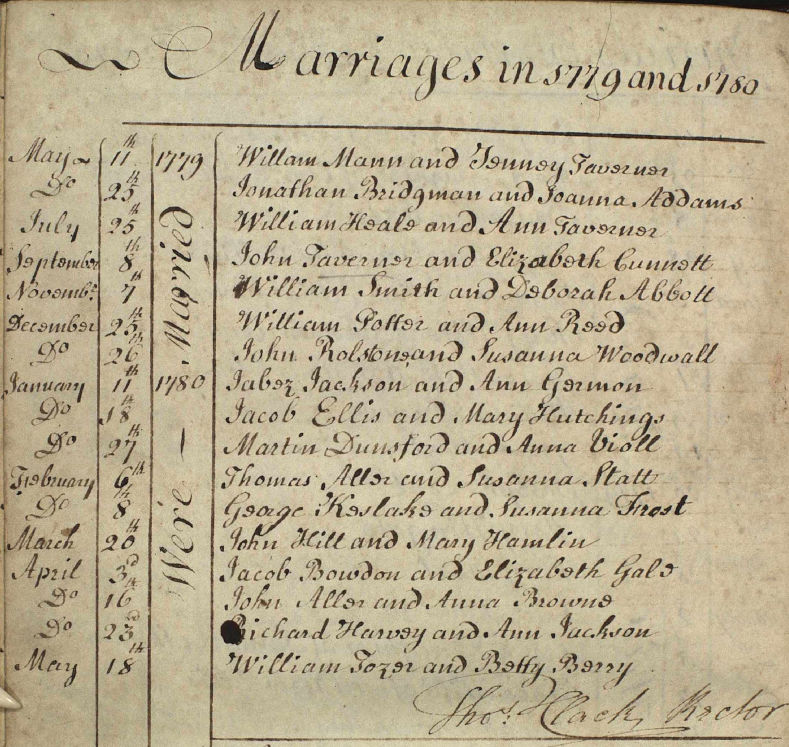 Marriages in 1779 and 1780
May 11th 1779 Willam Mann and Jenney Taverner
Do 25th Jonathan Bridgman and Joanna Addams
July 25th William Heale and Ann Taverner
September 8th John Taverner and Elizabeth Cunnett
Novembr. 7th William Smith and Deborah Abbott
December 25th William Potter and Ann Reed
Do 26th John Rolstone and Susanna Woodwall
January 11th 1780 Jabez Jackson and Ann Germon
Do 18th Jacob Ellis and Mary Hutchings
Do 27th Martin Dunsford and Anna Violl
February 6th Thomas Aller and Susanna Statt
Do 8th George Keslake and Susanna Frost
March 20th John Hill and Mary Hamlin
April 3d Jacob Bowdon and Elizabeth Gale
Do 16th John Aller and Anna Browne
Do 23d Richard Harvey and Ann Jackson
May 18th William Tozer and Betty Berry
Were Married
Thos. Clack, Rector